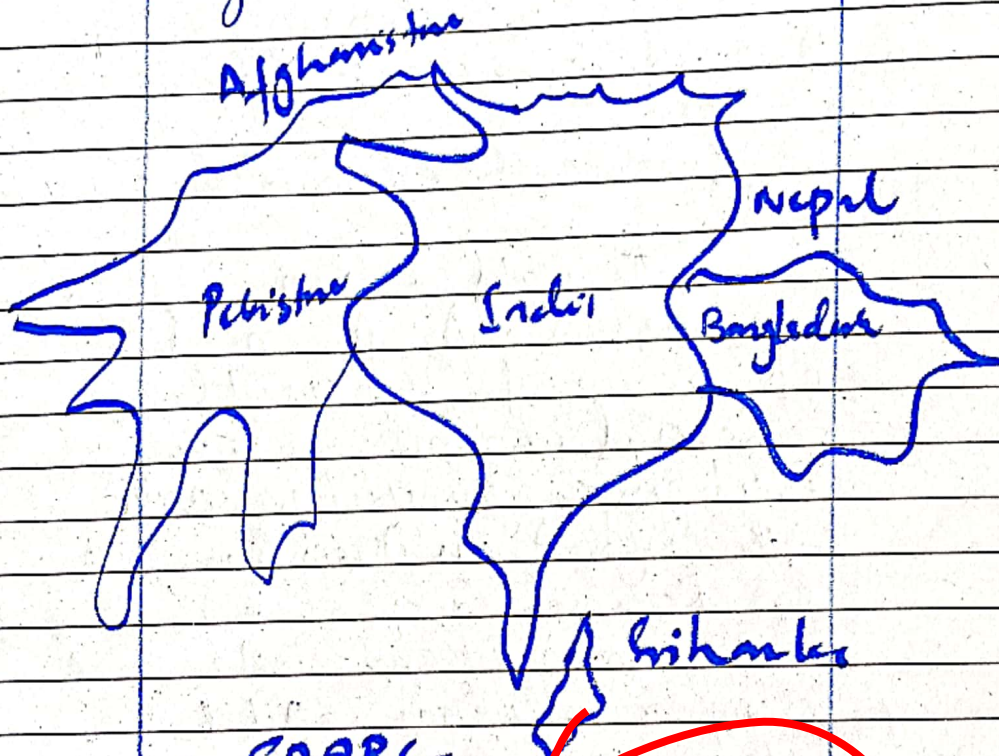 Afghanistan
Nepal
Pakistan
India
Bangladesh
Srilanka